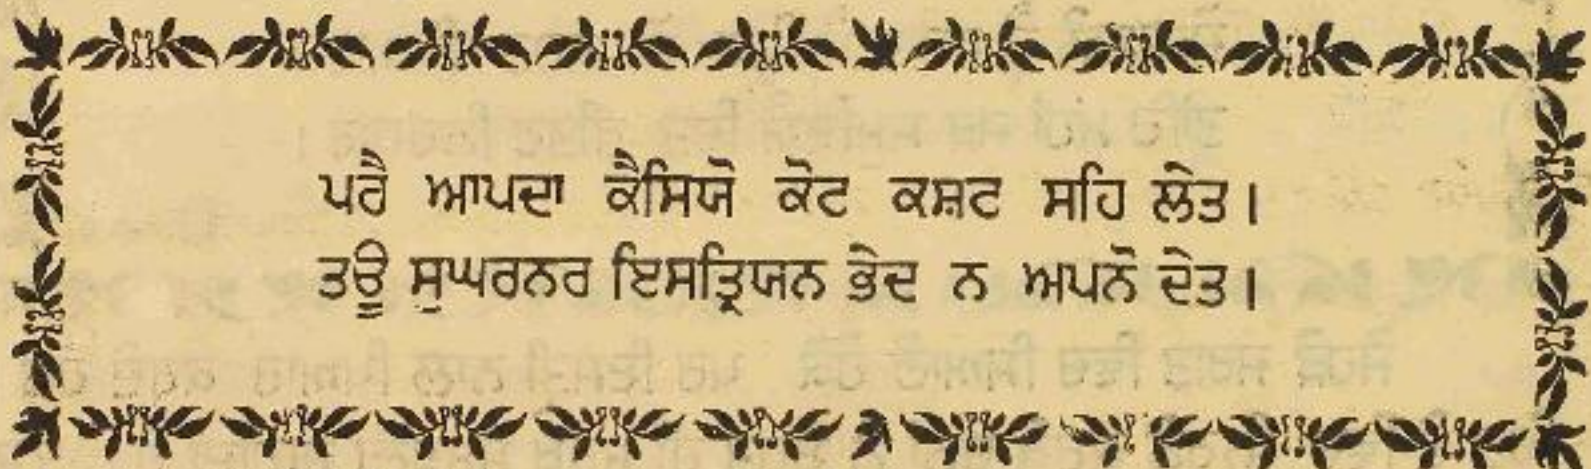 ਪਰੈ ਆਪਦਾ ਕੈਸਿਯੋ ਕੋਟ ਕਸ਼ਟ ਸਹਿ ਲੇਤ।
ਤਊ ਸੁਘਰਨਰ ਇਸਤ੍ਰਿਯਨ ਭੇਦ ਨ ਅਪਨੋ ਦੇਤ।